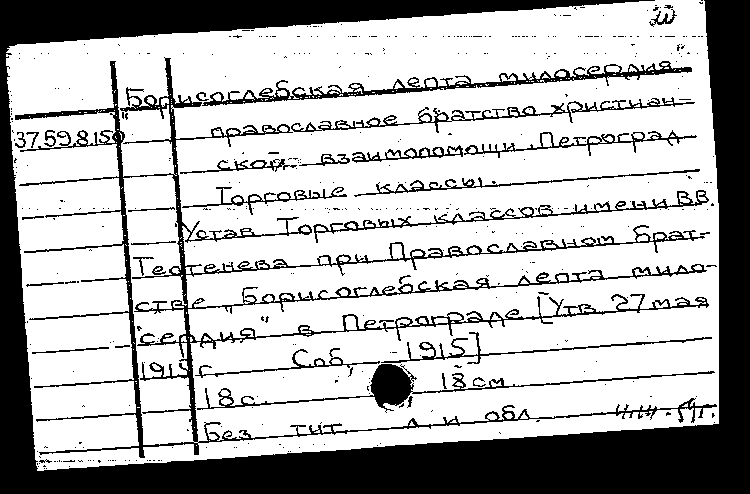 „Борисоглебская лепта милосердия",
37.59.8.150 православное братство христиан-
ской взаимопомощи. Петроград
Торговые классы.
Устав Торговых классов имени В.В.
Тестенева при Православном брат-
стве „Борисоглебская лепта мило-
сердия" в Петрограде. [Утв. 27 мая
1915 г. Соб, 1915]
18 с. 18 см.
Без тит. л. и обл.